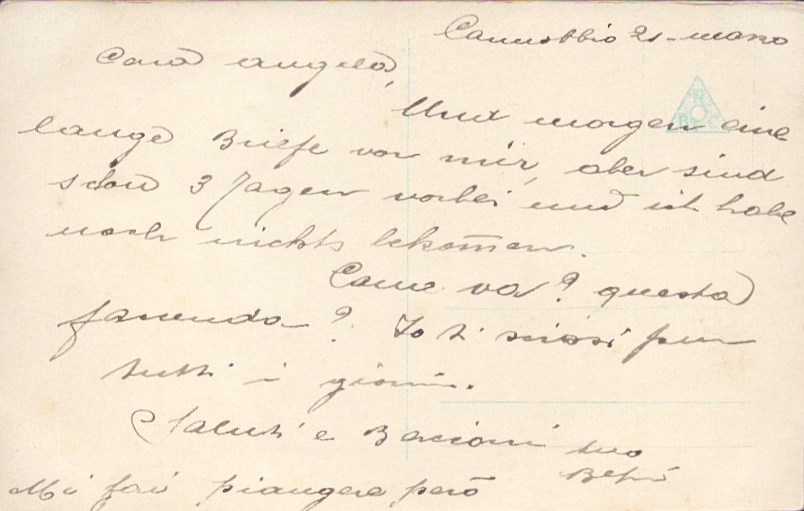 Cannobbio 21-marzo
Cara Angela,
Und morgen eine
lange Briefe von mir, aber sind
schon 3 Tagen vorbei und ich habe
noch nichts bekomen.
Come va? questa
facenda? Io ti scrissi pur
tutti i giorni.
Saluti e Bacioni tuo
Mi fai piangere però